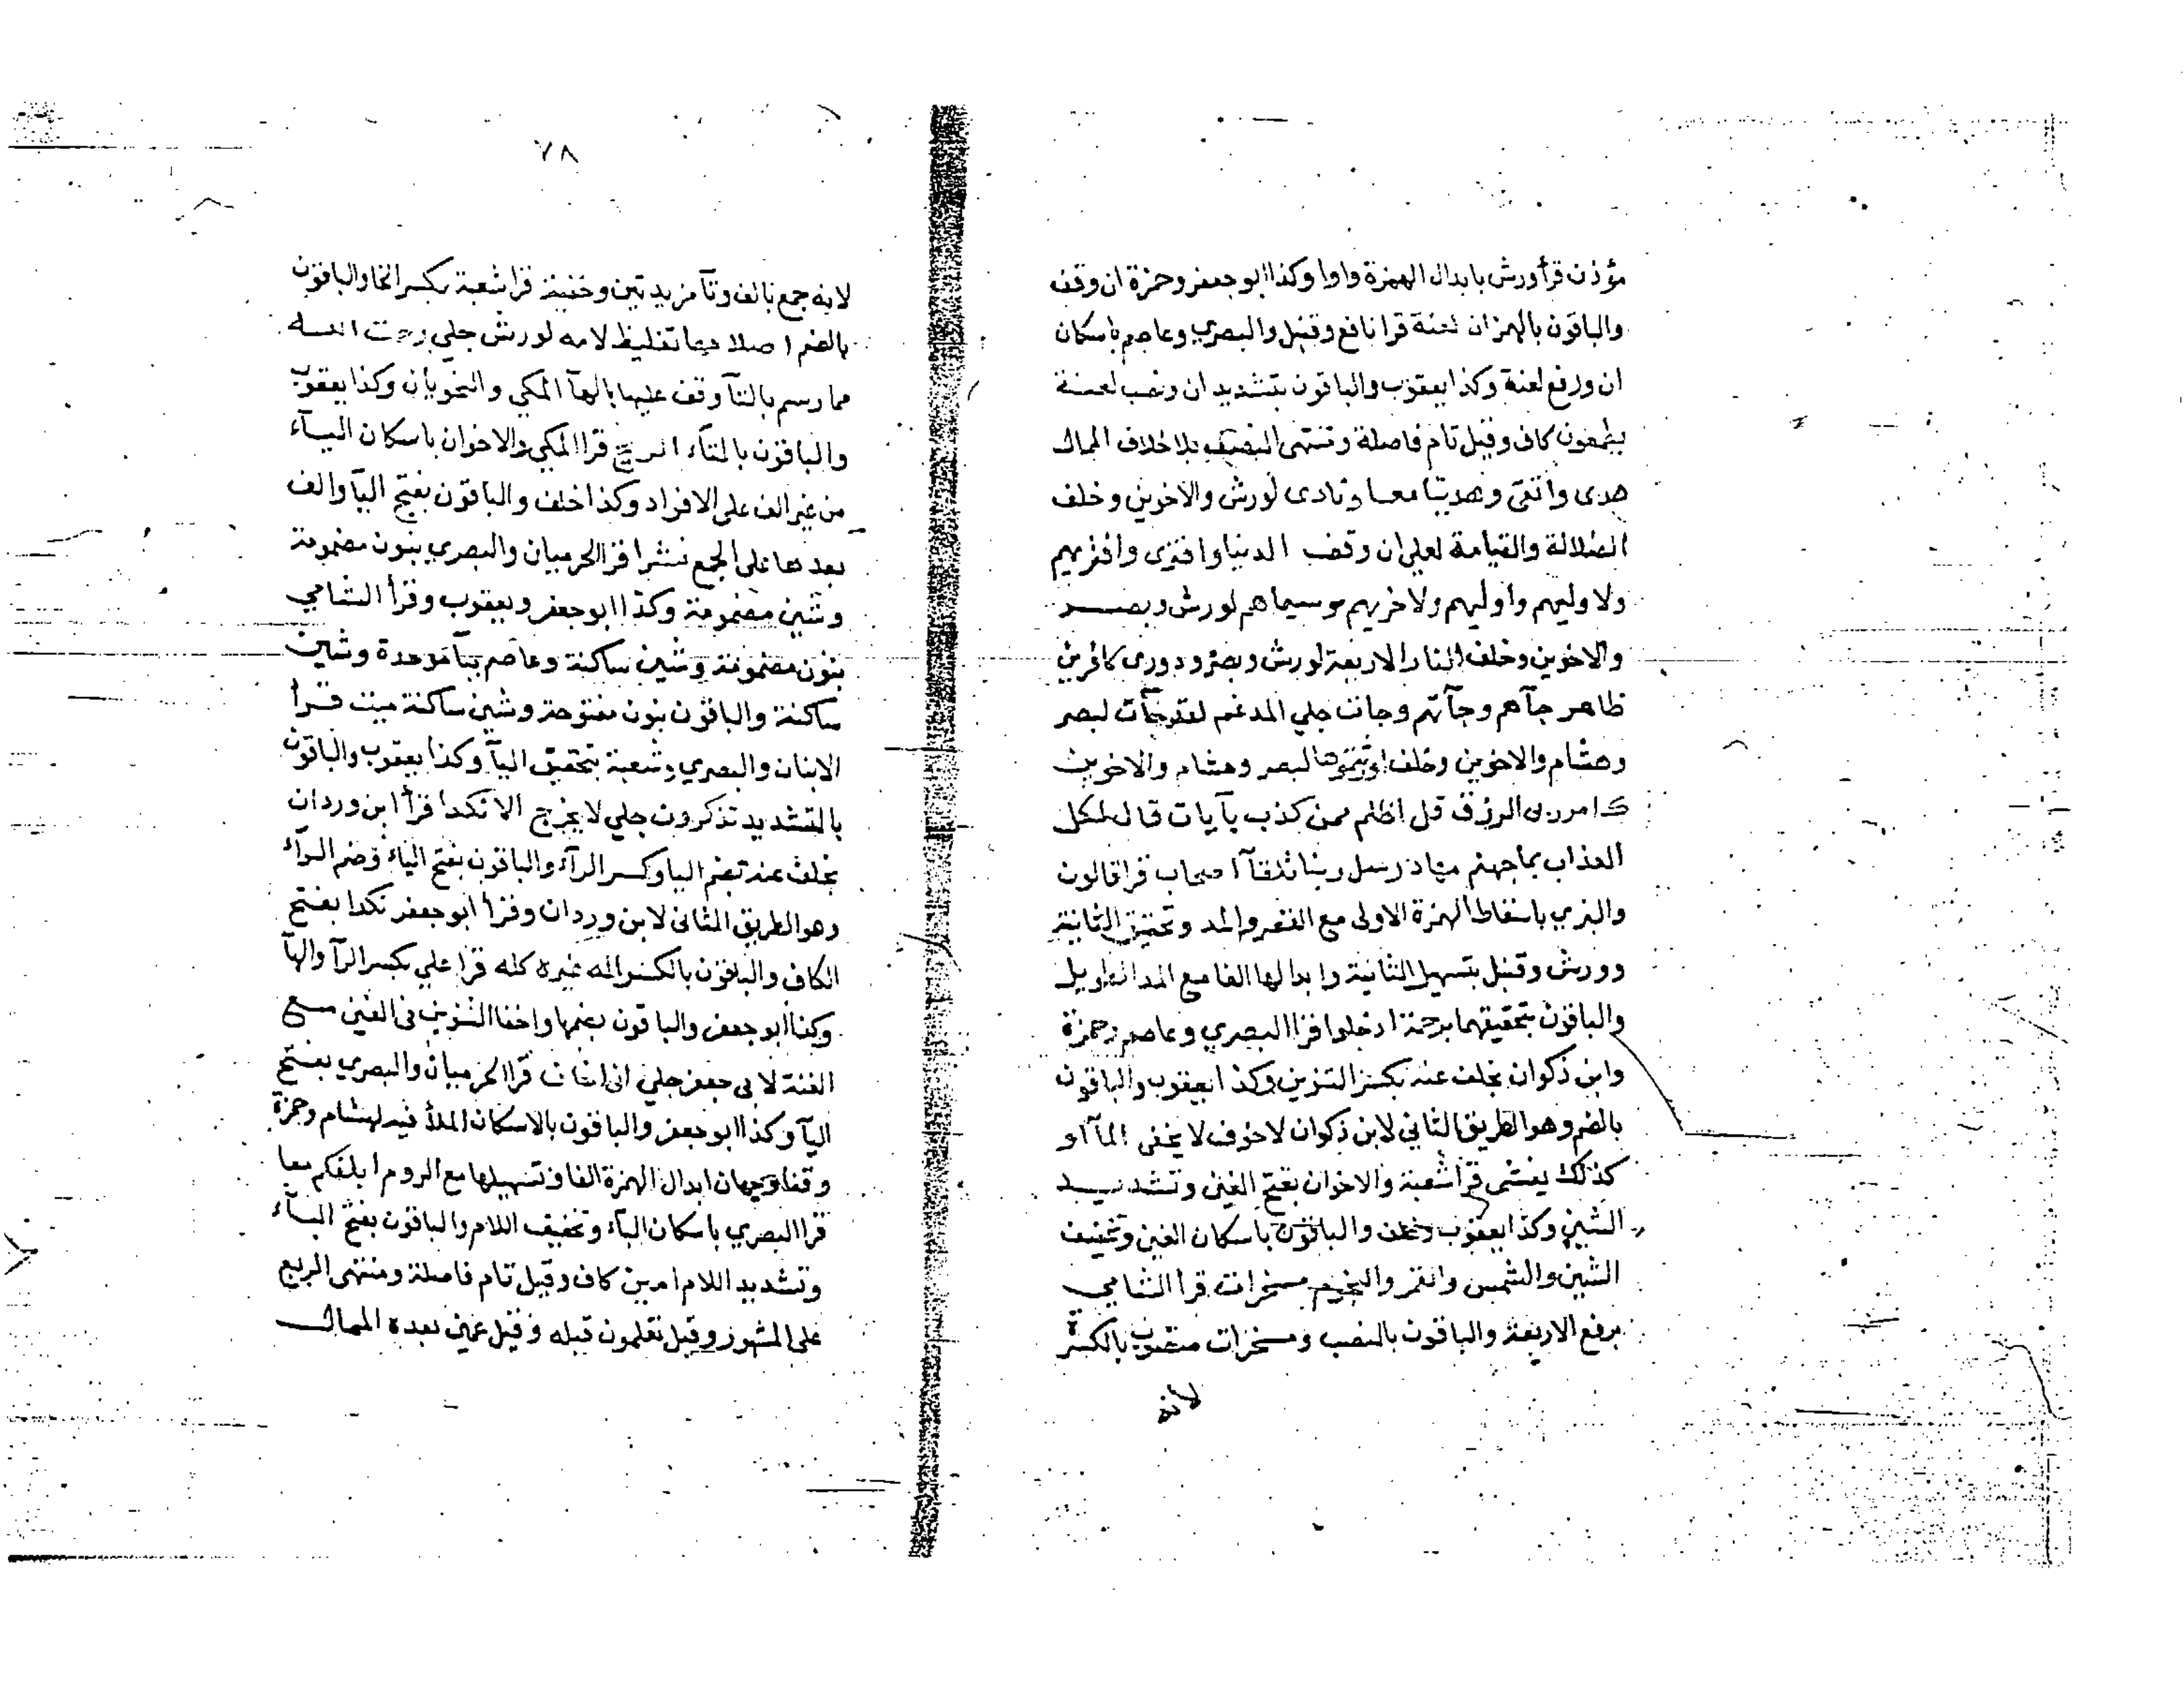 مؤذن قرأ ورش بابدال الهمزة واوا وكذا ابو جعفر وحمزة ان وقف
والباقون بالهمز ان لعنة قرا نافع وقنبل والبصري وعاصم باسكان
ان ورفع لعنة وكذا يعقوب والباقون بتشديد ان ونصب لعنة
يطمعون كاف وقيل تام فاصلة ومنتهى النصف بلا خلاف الممال
هدى واتقى وهدينا معا ونادى لورش والاخوين وخلف
الضلالة والقيامة لعلي ان وقف الدنيا وافترى وافتريهم
ولاوليهم واوليهم ولاخريهم وسيماهم لورش وبصر
والاخوين وخلف النار الاربعة لورش وبصر ودوري كافرين
ظاهر جآهم وجآتهم وجات جلي المدغم لقد جآت لبصر
وهشام والاخوين وخلف اورثتموها لبصر وهشام والاخوين
ك امر ربى الرزق قل اظلم ممن كذب بآيات قال لكل
العذاب بما جهنم مهاد رسل ربنا تلقآ اصحاب قرا قالون
والبزي باسقاط الهمزة الاولى مع القصر والمد وتحقيق الثانية
وورش وقنبل بتسهيل الثانية وابدالها الفا مع المد الطويل
والباقون بتحقيقهما برحمة ادخلوا قرا البصري وعاصم وحمزة
وابن ذكوان بخلف عنه بكسر التنوين وكذا يعقوب والباقون
بالضم وهو الطريق الثاني لابن ذكوان لاخوف لا يخفى المآ او
كذلك يغشى قرا شعبة والاخوان بفتح الغين وتشديد
الشين وكذا يعقوب وخلف والباقون باسكان الغين وتخفيف
الشين والشمس والقمر والنجوم مسخرات قرا الشامي
برفع الاربعة والباقون بالنصب ومسخرات منصوب بالكسرة
لانه
٧٨
لانه جمع بالف وتآ مزيدتين وخفية قرا شعبة بكسر الخا والباقون
بالضم اصلاحها تغليظ لامه لورش جلي رحمت الله
مما رسم بالتآ وقف عليها بالهآ المكي والنحويان وكذا يعقوب
والباقون بالتآء الريح قرا المكي والاخوان باسكان اليآء
من غير الف على الافراد وكذا خلف والباقون بفتح اليآ والف
بعدها على الجمع نشرا قرا الحرميان والبصري بنون مضمومة
وشين مضمومة وكذا ابو جعفر ويعقوب وقرأ الشامي
بنون مضمومة وشين ساكنة وعاصم ببآ موحدة وشين
ساكنة والباقون بنون مفتوحة وشين ساكنة ميت قرأ
الابنان والبصري وشعبة بتخفيف اليآ وكذا يعقوب والباقون
بالتشديد تذكرون جلي لا يخرج الا نكدا قرأ ابن وردان
بخلف عنه بضم اليا وكسر الرآء والباقون بفتح الياء وضم الرآء
وهو الطريق الثانى لابن وردان وقرأ ابو جعفر نكدا بفتح
الكاف والباقون بالكسر اله غيره كله قرا علي بكسر الرآ والهآ
وكذا ابو جعفر والباقون بضمها واخفا التنوين فى الغين مع
الغنة لابى جعفر جلي انى اخاف قرا الحرميان والبصري بفتح
اليآ وكذا ابو جعفر والباقون بالاسكان الملأ فيه لهشام وحمزة
وقفا وجهان ابدال الهمزة الفا وتسهيلها مع الروم ابلغكم معا
قرا البصري باسكان البآء وتخفيف اللام والباقون بفتح البآء
وتشديد اللام امين كاف وقيل تام فاصلة ومنتهى الربع
على المشهور وقيل تعلمون قبله وقيل عمين بعده الممال